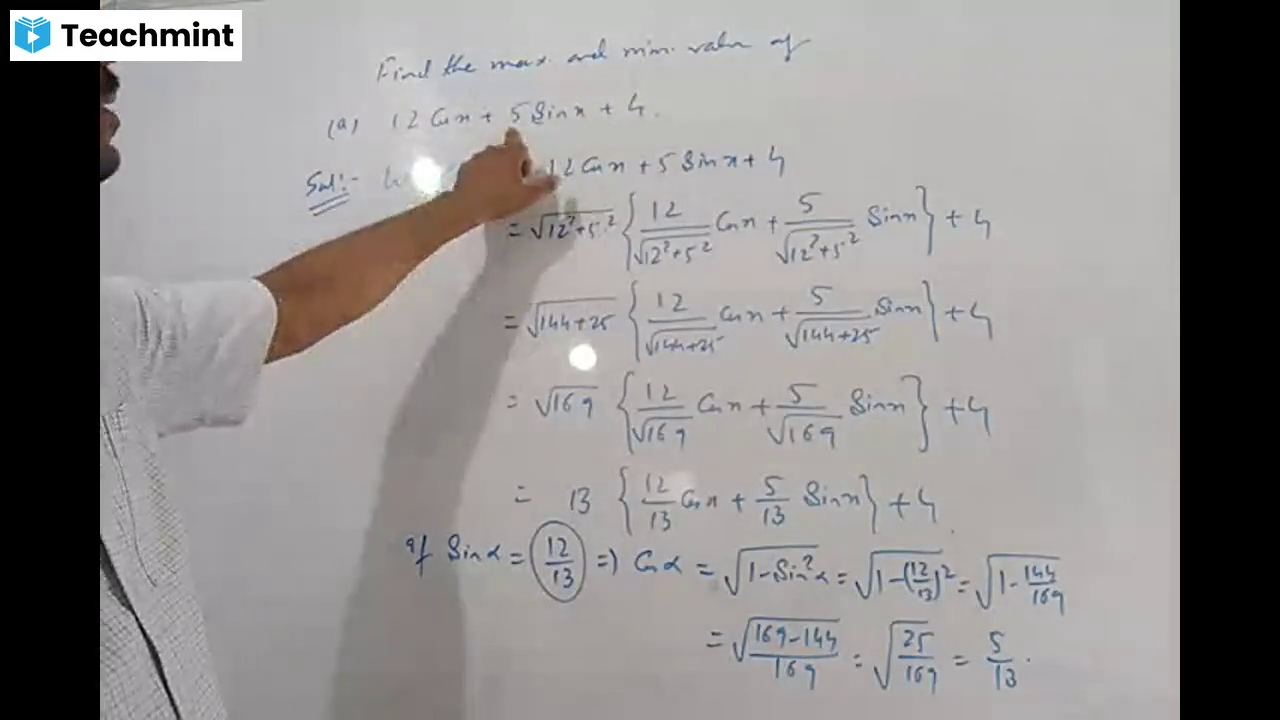 Teachmint
Find the max and min. value of
(a) 12 Cos x + 5 Sin x + 4.
Sol:- 12 Cos x + 5 Sin x + 4
= √(12²+5²) { 12/√(12²+5²) Cos x + 5/√(12²+5²) Sin x } + 4
= √(144+25) { 12/√(144+25) Cos x + 5/√(144+25) Sin x } + 4
= √169 { 12/√169 Cos x + 5/√169 Sin x } + 4
= 13 { 12/13 Cos x + 5/13 Sin x } + 4
If Sin α = 12/13 => Cos α = √(1-Sin²α) = √(1-(12/13)²) = √(1-144/169)
= √((169-144)/169) = √(25/169) = 5/13.